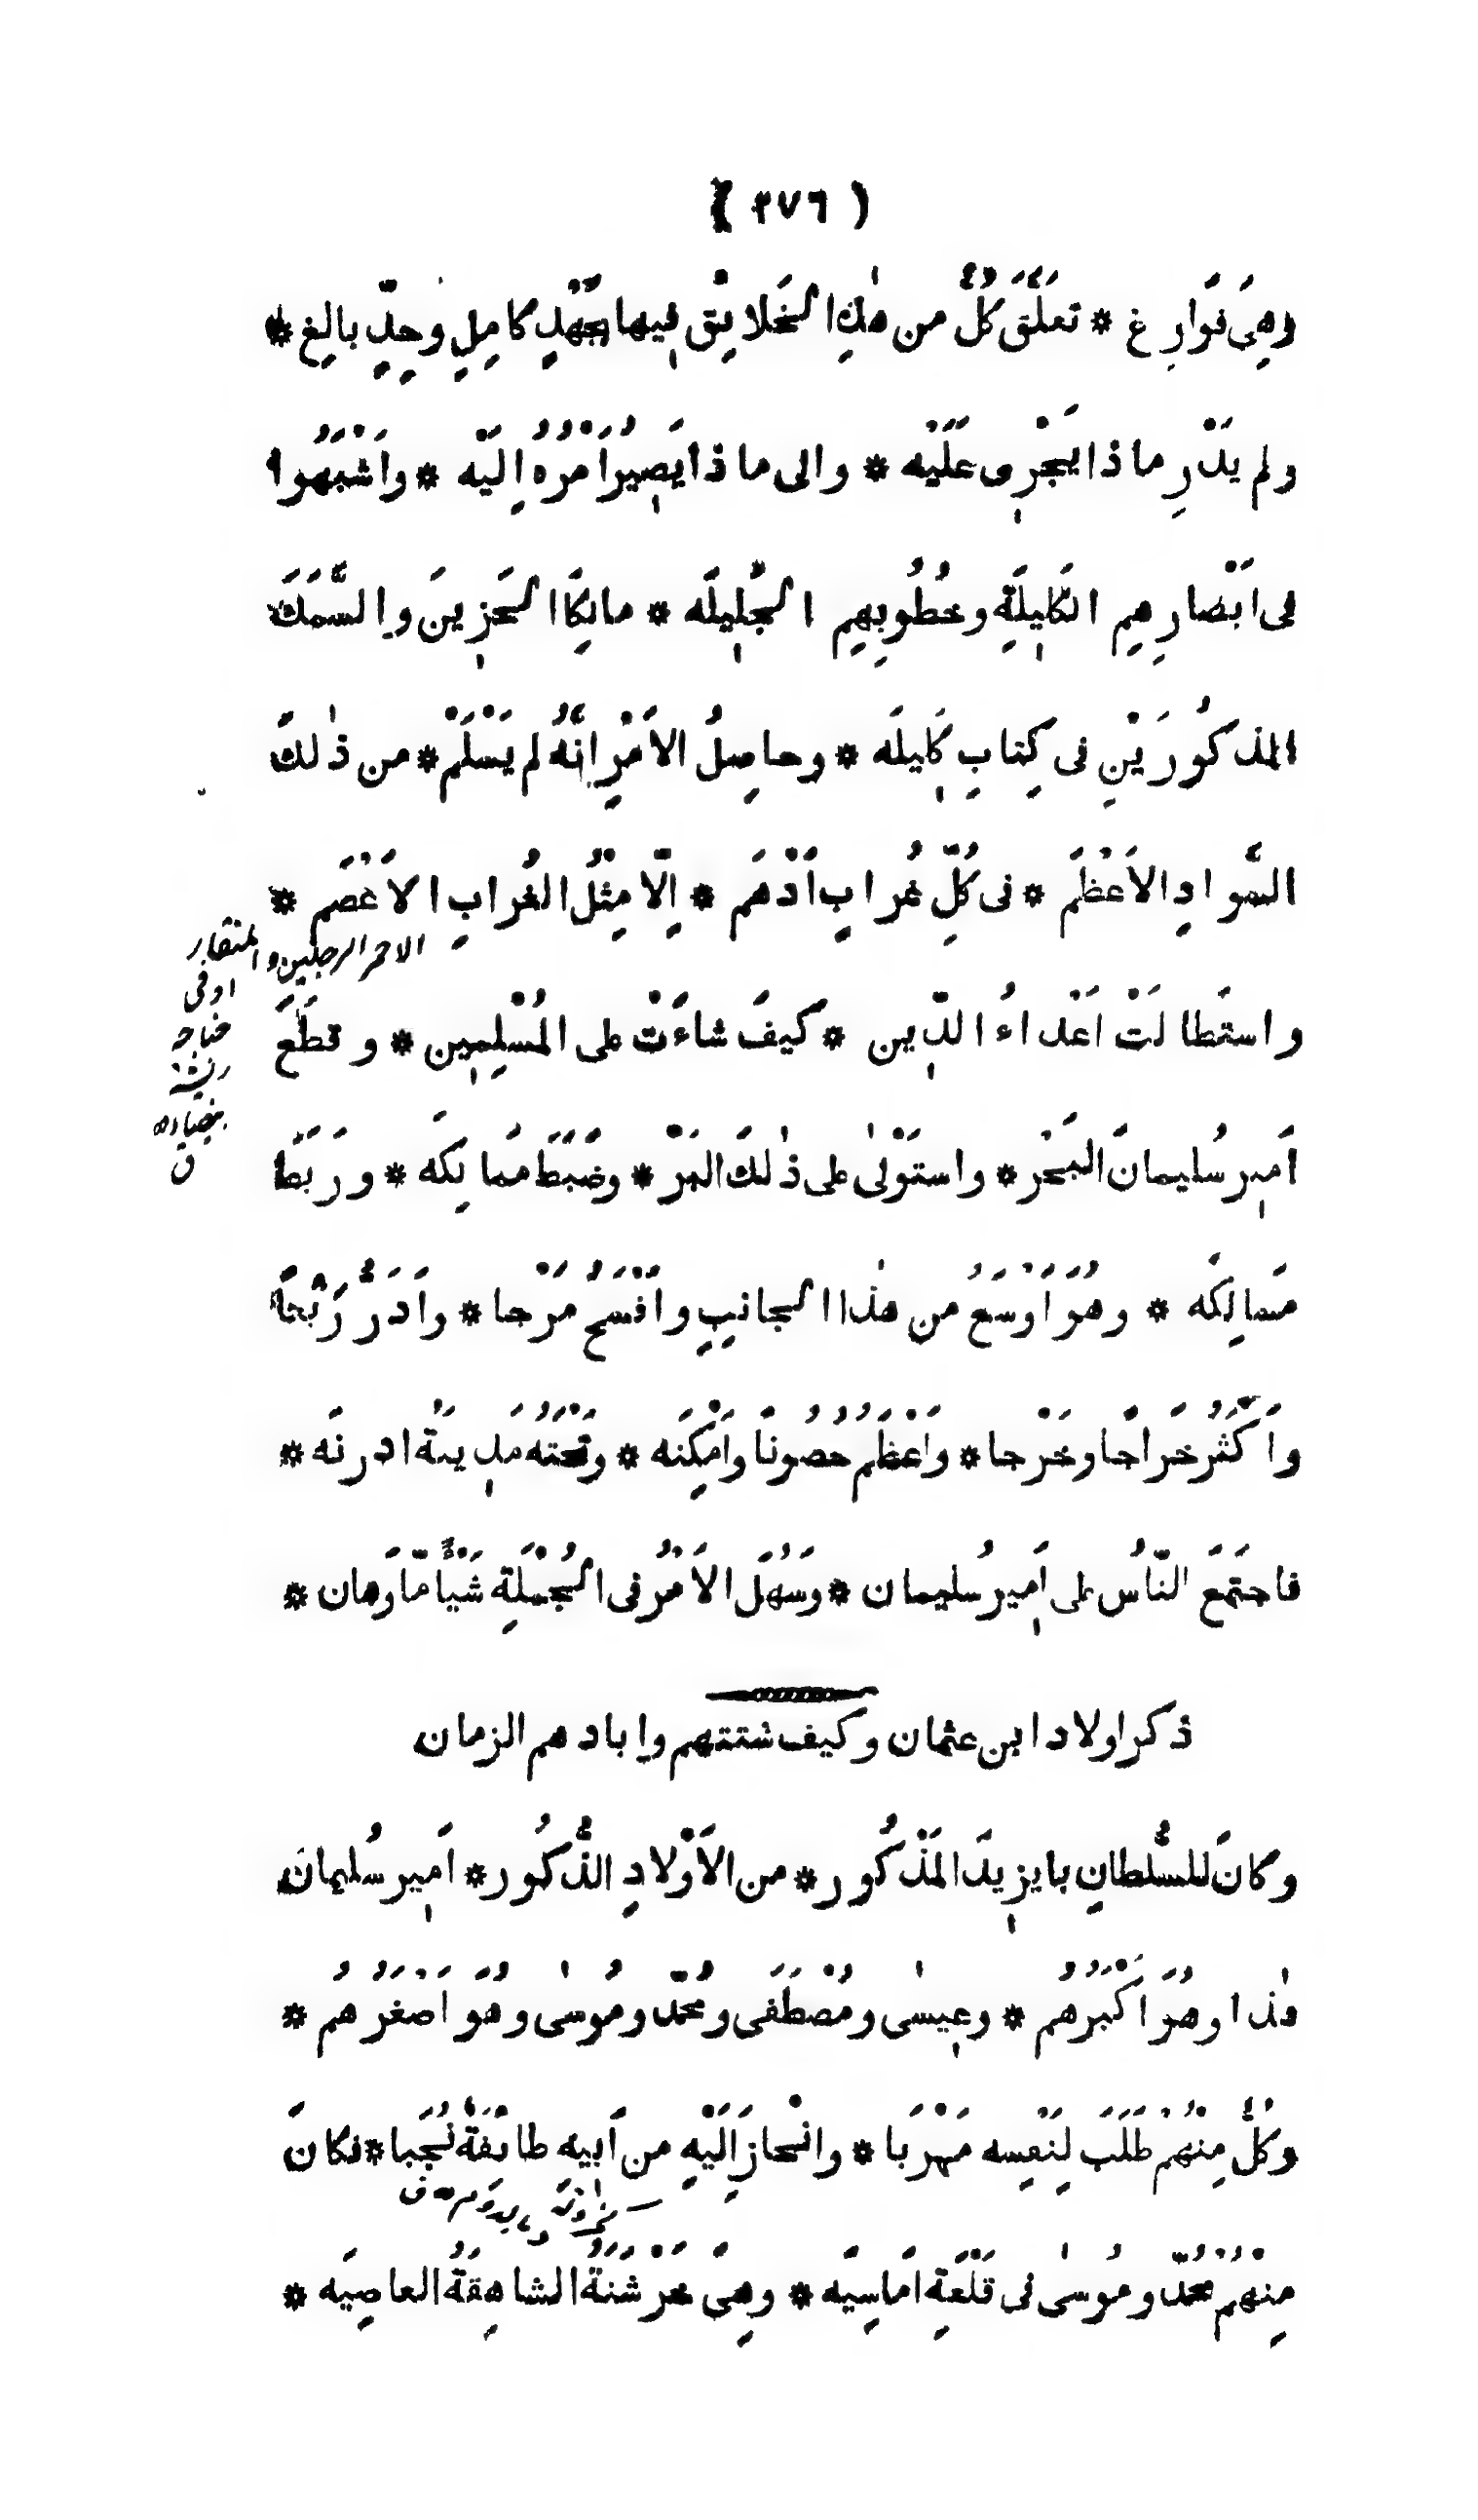 ( ٢٧٦ )
وهِىَ فَوَارِغ * تعلَّقَ كُلٌّ من هٰذِهِ الخَلايِق فيها بِجُهْدٍ كامِلٍ وجِدٍّ بالِغ *
ولم يَدْرِ ماذا يَجْرِى عَلَيْه * والى ماذا يَصِيرُ اَمْرُهُ اِلَيْه * واَشْبَهُوا
فى اَبْصارِهِم الكَلِيلَةِ وخُطُوبِهِم الجَلِيلَه * مالِكًا الحَزِينَ والسَّمَكَ
المذكُورَيْنِ فى كِتابِ كَلِيلَه * وحاصِلُ الاَمْرِ انَّهُ لم يَسْلَمْ * من ذٰلكَ
السَّوادِ الاَعْظَمَ * فى كُلِّ غُرابٍ اَدْهَمَ * اِلّا مِثْلُ الغُرابِ الاَعْصَمِ *
الاحمر الرجلين والمنقار
اوفى
جناحه
ريشة
بيضاء
ن
واستَطالَتْ اَعْداءُ الدّين * كيفَ شاءَتْ على المُسْلِمِين * وقطَعَ
اَمِير سُليمانَ البَحْر * واستَوْلٰى على ذٰلكَ البَرْ * وضَبَطَ مَمالِكَه * ورَبَطَ
مَسالِكَه * وهُوَ اَوْسَعُ من هٰذا الجانِبِ واَفْسَحُ مَرْجا * واَدَرُّ رَبْحًا
واَكْثَرُ خَراجًا وخَرْجا * واَعْظَمُ حُصُونًا واَمْكِنَه * وتَخْتُهُ مَدِينةُ ادرنَه *
فاجتَمَعَ النّاسُ على اَمِير سُليمان * وسَهُلَ الاَمْرُ فى الجُمْلَةِ شَيْأً مّا وَهان *
ذكر اولاد ابن عثمان وكيف شتتهم وابادهم الزمان
وكانَ للسُّلطانِ بايزِيدَ المَذْكُور * من الاَوْلادِ الذُّكُور * اَمِير سُليمانَ
هٰذا وهُوَ اَكْبَرُهُم * وعِيسٰى ومُصْطَفَى ومُحَمَّد ومُوسٰى وهُوَ اَصْغَرُهُم *
وكُلٌّ مِنْهُم طَلَبَ لِنَفْسِه مَهْرَبَا * وانْحازَ اِلَيْهِ من اَبِيهِ طائفَةٌ نُجَبا * فكانَ
مِنْهُمْ مُحَمّد ومُوسٰى فى قَلْعَةِ اَماسِيَه * وهِىَ خَرْشَنَةُ الشاهِقَةُ العاصِيَه *